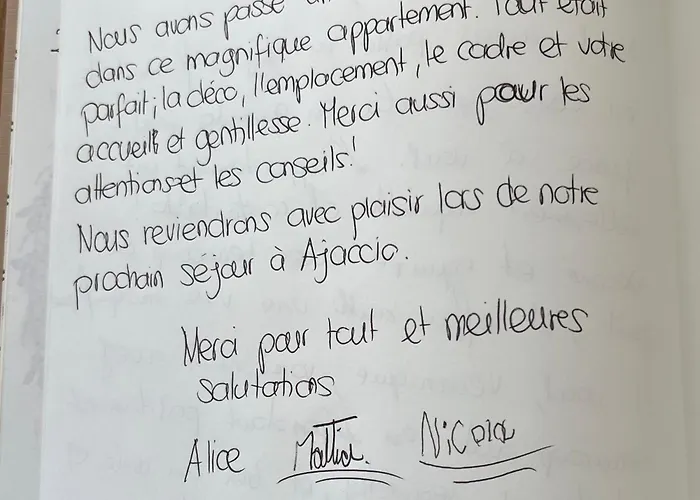 Nous avons passé
dans ce magnifique appartement. Tout était
parfait; la déco, l'emplacement, le cadre et votre
accueil et gentillesse. Merci aussi pour les
attentions et les conseils!
Nous reviendrons avec plaisir lors de notre
prochain séjour à Ajaccio.
Merci pour tout et meilleures
salutations
Alice Mattia. Nicola